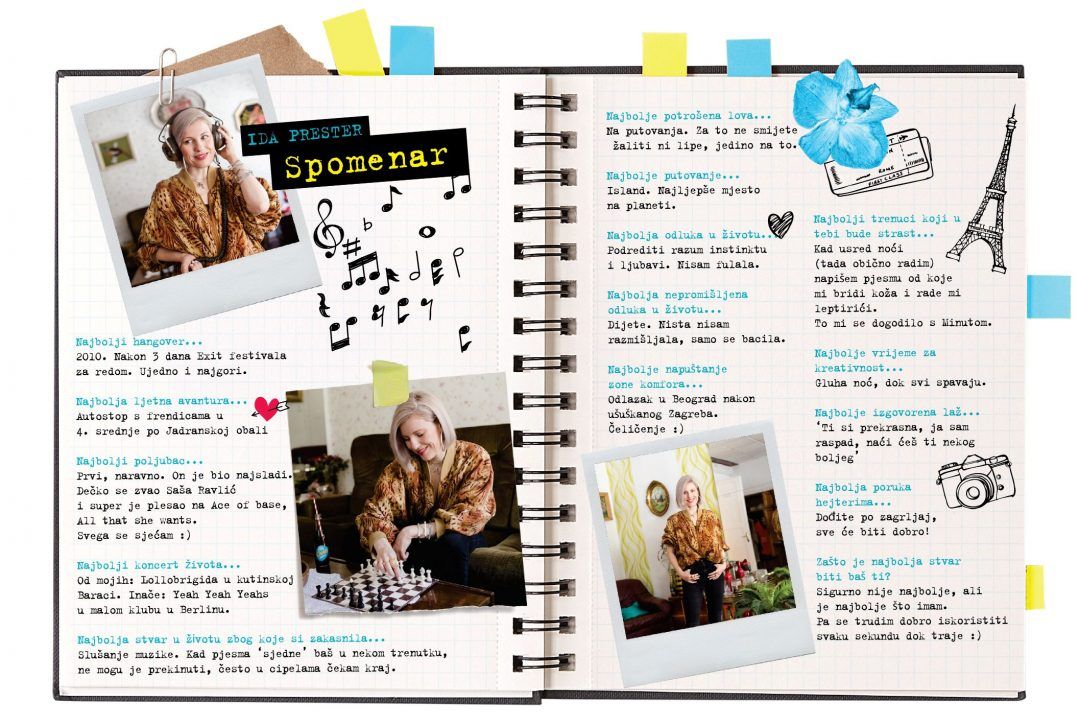 IDA PRESTER
Spomenar
Najbolji hangover...
2010. Nakon 3 dana Exit festivala
za redom. Ujedno i najgori.
Najbolja ljetna avantura...
Autostop s frendicama u
4. srednje po Jadranskoj obali
Najbolji poljubac...
Prvi, naravno. On je bio najsladi.
Dečko se zvao Saša Ravlić
i super je plesao na Ace of base,
All that she wants.
Svega se sjećam :)
Najbolji koncert života...
Od mojih: Lollobrigida u kutinskoj
Baraci. Inače: Yeah Yeah Yeahs
u malom klubu u Berlinu.
Najbolja stvar u životu zbog koje si zakasnila...
Slušanje muzike. Kad pjesma ‘sjedne’ baš u nekom trenutku,
ne mogu je prekinuti, često u cipelama čekam kraj.
Najbolje potrošena lova...
Na putovanja. Za to ne smijete
žaliti ni lipe, jedino na to.
Najbolje putovanje...
Island. Najljepše mjesto
na planeti.
Najbolja odluka u životu...
Podrediti razum instinktu
i ljubavi. Nisam fulala.
Najbolja nepromišljena
odluka u životu...
Dijete. Nista nisam
razmišljala, samo se bacila.
Najbolje napuštanje
zone komfora...
Odlazak u Beograd nakon
ušuškanog Zagreba.
Čeličenje :)
FIRST CLASS
Najbolji trenuci koji u
tebi bude strast...
Kad usred noći
(tada obično radim)
napišem pjesmu od koje
mi bridi koža i rade mi
leptirići.
To mi se dogodilo s Minutom.
Najbolje vrijeme za
kreativnost...
Gluha noć, dok svi spavaju.
Najbolje izgovorena laž...
‘Ti si prekrasna, ja sam
raspad, naći ćeš ti nekog
boljeg’
Najbolja poruka
hejterima...
Dođite po zagrljaj,
sve će biti dobro!
Zašto je najbolja stvar
biti baš ti?
Sigurno nije najbolje, ali
je najbolje što imam.
Pa se trudim dobro iskoristiti
svaku sekundu dok traje :)